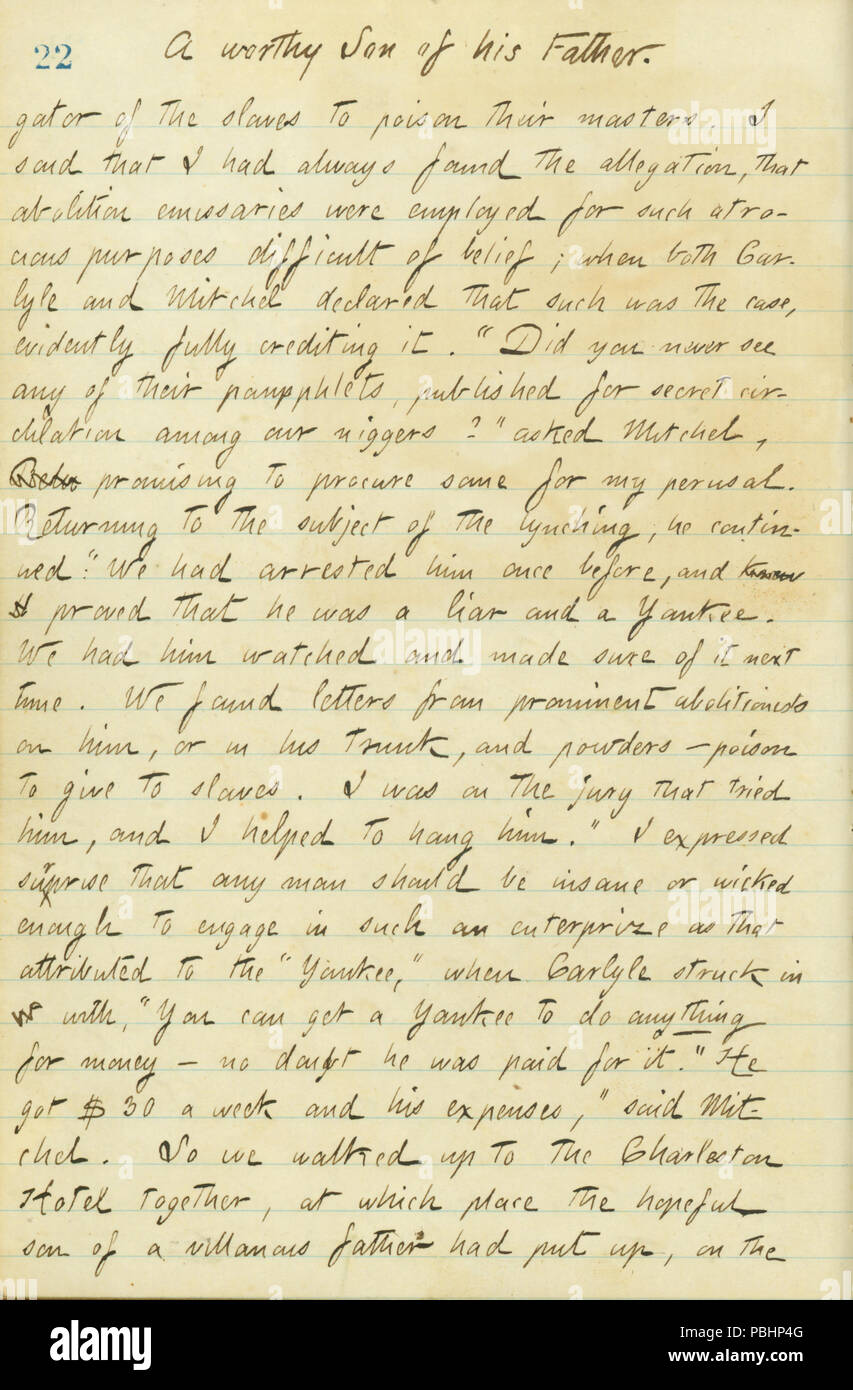 22 A worthy Son of his Father.
gator of the slaves to poison their masters. I
said that I had always found the allegation, that
abolition emissaries were employed for such atro-
cious purposes difficult of belief; when both Car-
lyle and Mitchel declared that such was the case,
evidently fully crediting it. "Did you never see
any of their pampphlets, published for secret cir-
chlation among our niggers?" asked Mitchel,
promising to procure some for my perusal.
Returning to the subject of the lynching, he contin-
ued: "We had arrested him once before, and know
proved that he was a liar and a Yankee.
We had him watched and made sure of it next
time. We found letters from prominent abolitionists
on him, or in his trunk, and powders — poison
to give to slaves. I was on the jury that tried
him, and I helped to hang him." I expressed
surprise that any man should be insane or wicked
enough to engage in such an enterprize as that
attributed to the "Yankee," when Carlyle struck in
with, "You can get a Yankee to do anything
for money — no doubt he was paid for it." "He
got $30 a week and his expenses," said Mit-
chel. So we walked up to the Charleston
Hotel together, at which place the hopeful
son of a villanous father had put up, on the
alamy
a
alamy stock photo
PBHP4G
www.alamy.com